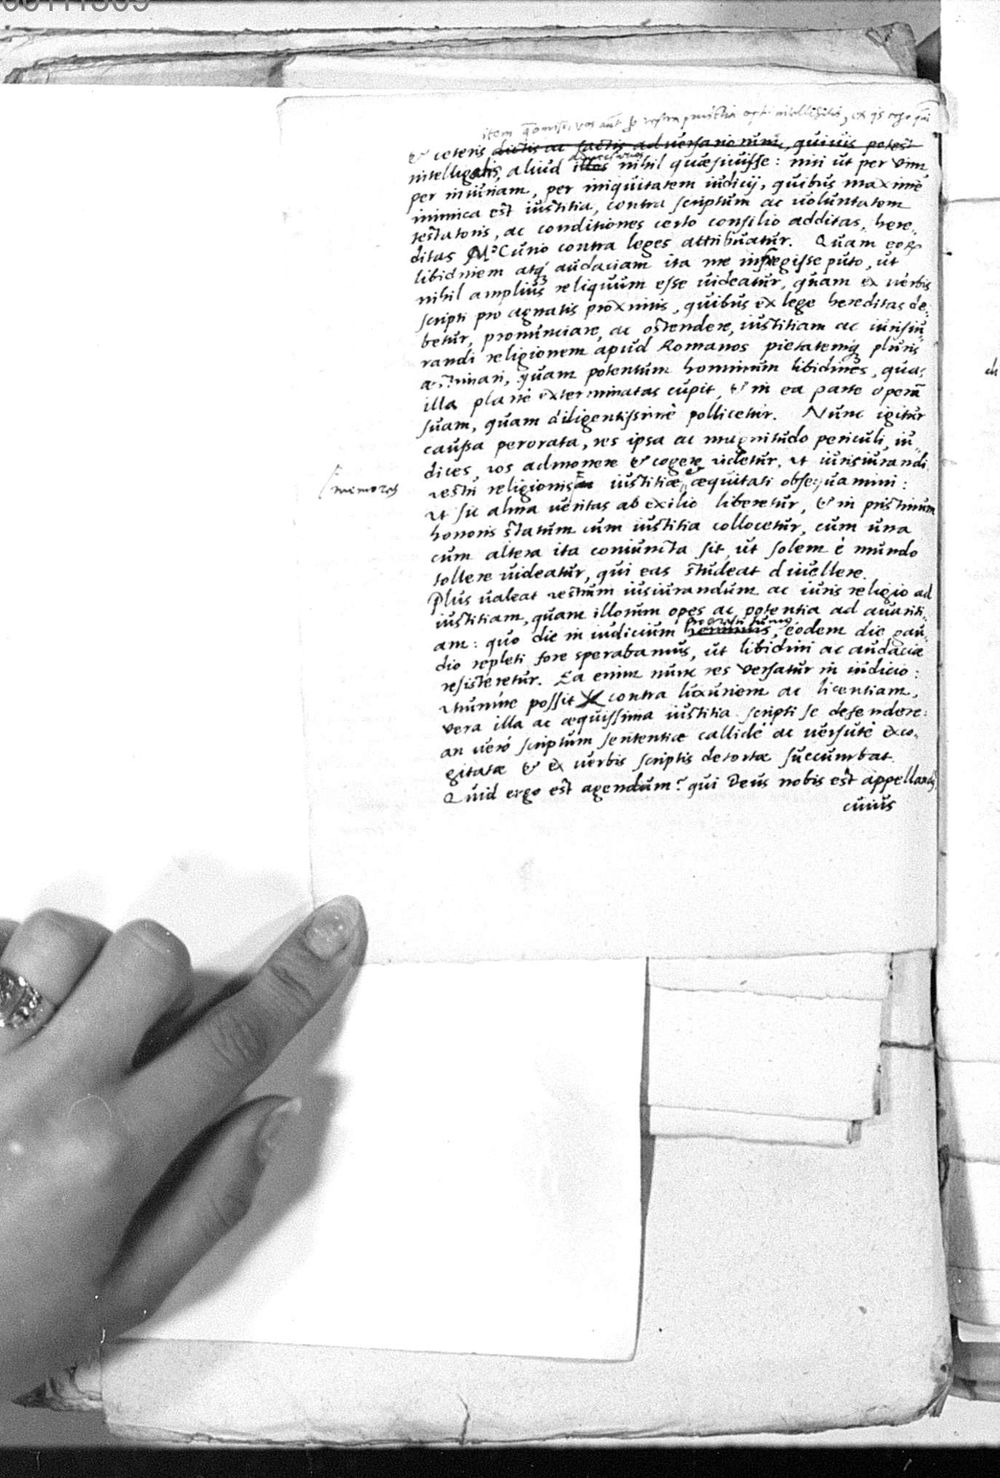 & ceteris dictis ac factis adversariorum, quivis potest
intelligatis, aliud illos adversarios nihil quæsivisse: nisi ut per vim,
per iniuriam, per iniquitatem iudicij, quibus maxime
inimica est iustitia, contra scriptum ac voluntatem
testatoris, ac conditiones certo consilio additas, here-
ditas M. Curio contra leges attribuatur. Quam eorum
libidinem atq; audaciam ita me infregisse puto, ut
nihil amplius reliquum esse uideatur, quam ex verbis
scripti pro agnatis proximis, quibus ex lege hereditas de-
betur, pronunciare, ac ostendere, iustitiam ac iurisiu-
randi religionem apud Romanos pietatemq; pluris
quam potentum hominum libidines, quas
illa plane exterminatas cupit, & in ea parte operam
suam, quam diligentissime pollicetur. Nunc igitur
caussa perorata, res ipsa ac magnitudo periculi, iu-
dices, vos admonere & cogere videtur, ut iurisiurandi
memores
vestri religionis iustitiæ, æquitati obsequamini:
ut sic alma veritas ab exilio liberetur, & in pristinum
honoris statum cum iustitia collocetur, cum una
cum altera ita coniuncta sit, ut solem è mundo
tollere uideatur, qui eas studeat divellere.
Plus ualeat vestrum iusiurandum ac iuris religio ad
iustitiam, quam illorum opes ac potentia ad avariti-
am: quo die in iudicium venimus, eodem die gau-
dio repleti fore sperabamus, ut libidini ac audaciæ
resisteretur. Ea enim nunc res versatur in iudicio:
utrumne possit contra luxuriem ac licentiam,
vera illa ac æquissima iustitia scripti se defendere:
an verò scriptum sententiæ callidè ac versutè exco-
gitatæ & ex verbis scriptis detortæ succumbat.
Quid ergo est agendum? qui Deus nobis est appellandus
cuius